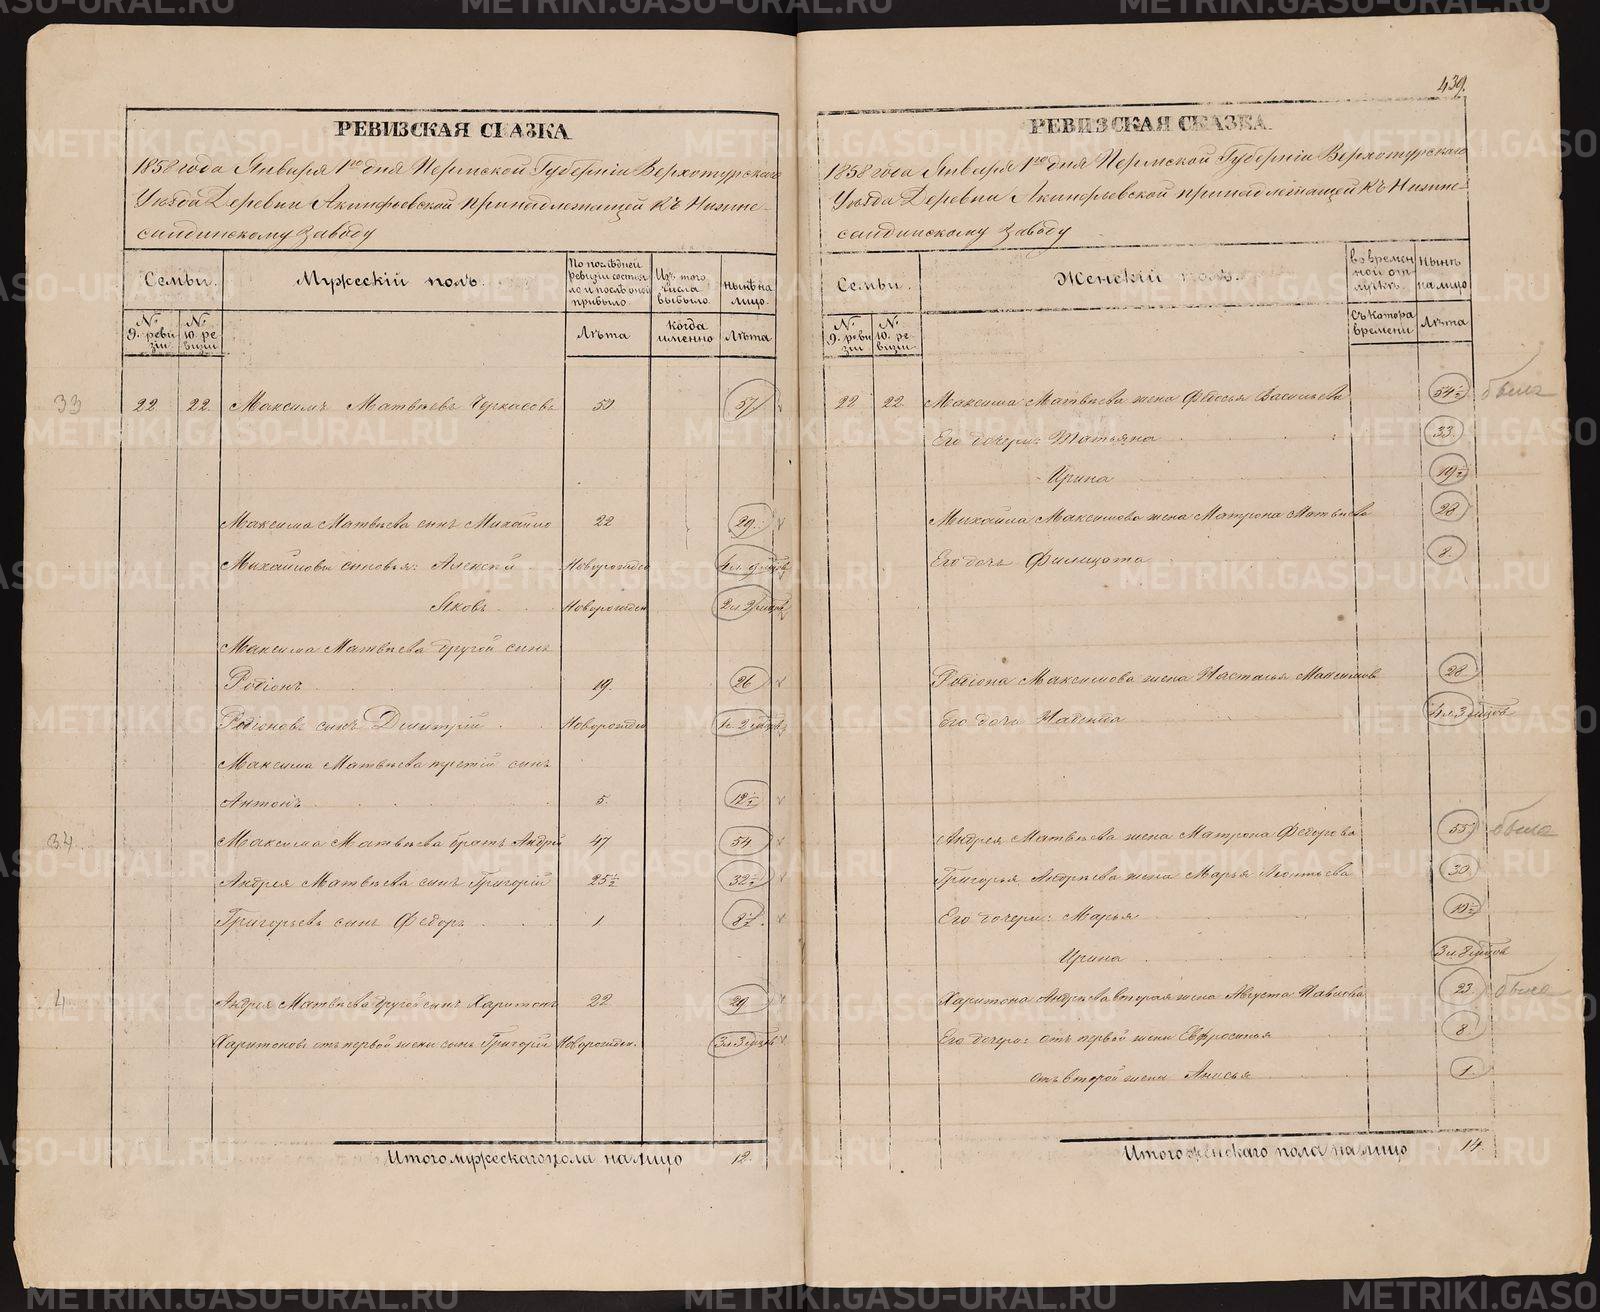 439.
РЕВИЗСКАЯ СКАЗКА
1858 года Января 1го дня Пермской Губерніи Верхотурскаго
Уѣзда Деревни Акинфьевской принадлежащей къ Нижне-
салдинскому заводу
Семьи. Мужескій полъ. По послѣдней ревизіи состояло и послѣ оной прибыло Изъ того числа выбыло Нынѣ на лицо.
№ 9. ревизіи № 10. ревизіи Лѣта когда именно Лѣта
33 22 22 Максимъ Матвѣевъ Черкасовъ 50 57
Максима Матвѣева сынъ Михайло 22 29.
Михайловы сыновья: Алексѣй Новорожден
Яковъ Новорожден
Максима Матвѣева другой сынъ
Родіонъ 19. 26
Родіоновъ сынъ Димитрій Новорожден
Максима Матвѣева третій сынъ
Антонъ 5. 12½
34 Максима Матвѣева братъ Андрей 47 54
Андрея Матвѣева сынъ Григорій 25½ 32½
Григорьевъ сынъ Федоръ 1 8½
4 Андрея Матвѣева другой сынъ Харитонъ 22 29
Харитоновъ отъ первой жены сынъ Григорій Новорожден. 3 л 3 мѣсяцовъ
Итого мужескаго пола на лицо 12.
РЕВИЗСКАЯ СКАЗКА
1858 года Января 1го дня Пермской Губерніи Верхотурскаго
Уѣзда Деревни Акинфьевской принадлежащей Къ Нижне-
салдинскому заводу
Семьи. Женскій полъ. во временной отлучкѣ. Нынѣ на лицо
№ 9. ревизіи № 10. ревизіи Съ котора времени Лѣта
22 22 Максима Матвѣева жена Федосья Васильева 54½
Его дочери: Татьяна 33
Ирина 19½
Михайла Максимова жена Матрона Матвѣева 28
Его дочь Филицата 8
Родіона Максимова жена Настасья Максимов 28
Его дочь Надежда 4 л 3 мѣсяцовъ
Андрея Матвѣева жена Матрона Федорова 55 была
Григорья Андреева жена Марья Леонтьева 30
Его дочери: Марья
Ирина 3 л 8 мѣсяцовъ
Харитона Андреева вторая жена Августа Павлова 23 была
Его дочери: отъ первой жены Евфросинья 8
отъ второй жены Анисья 1
Итого женскаго пола на лицо 14.
METRIKI.GASO-URAL.RU